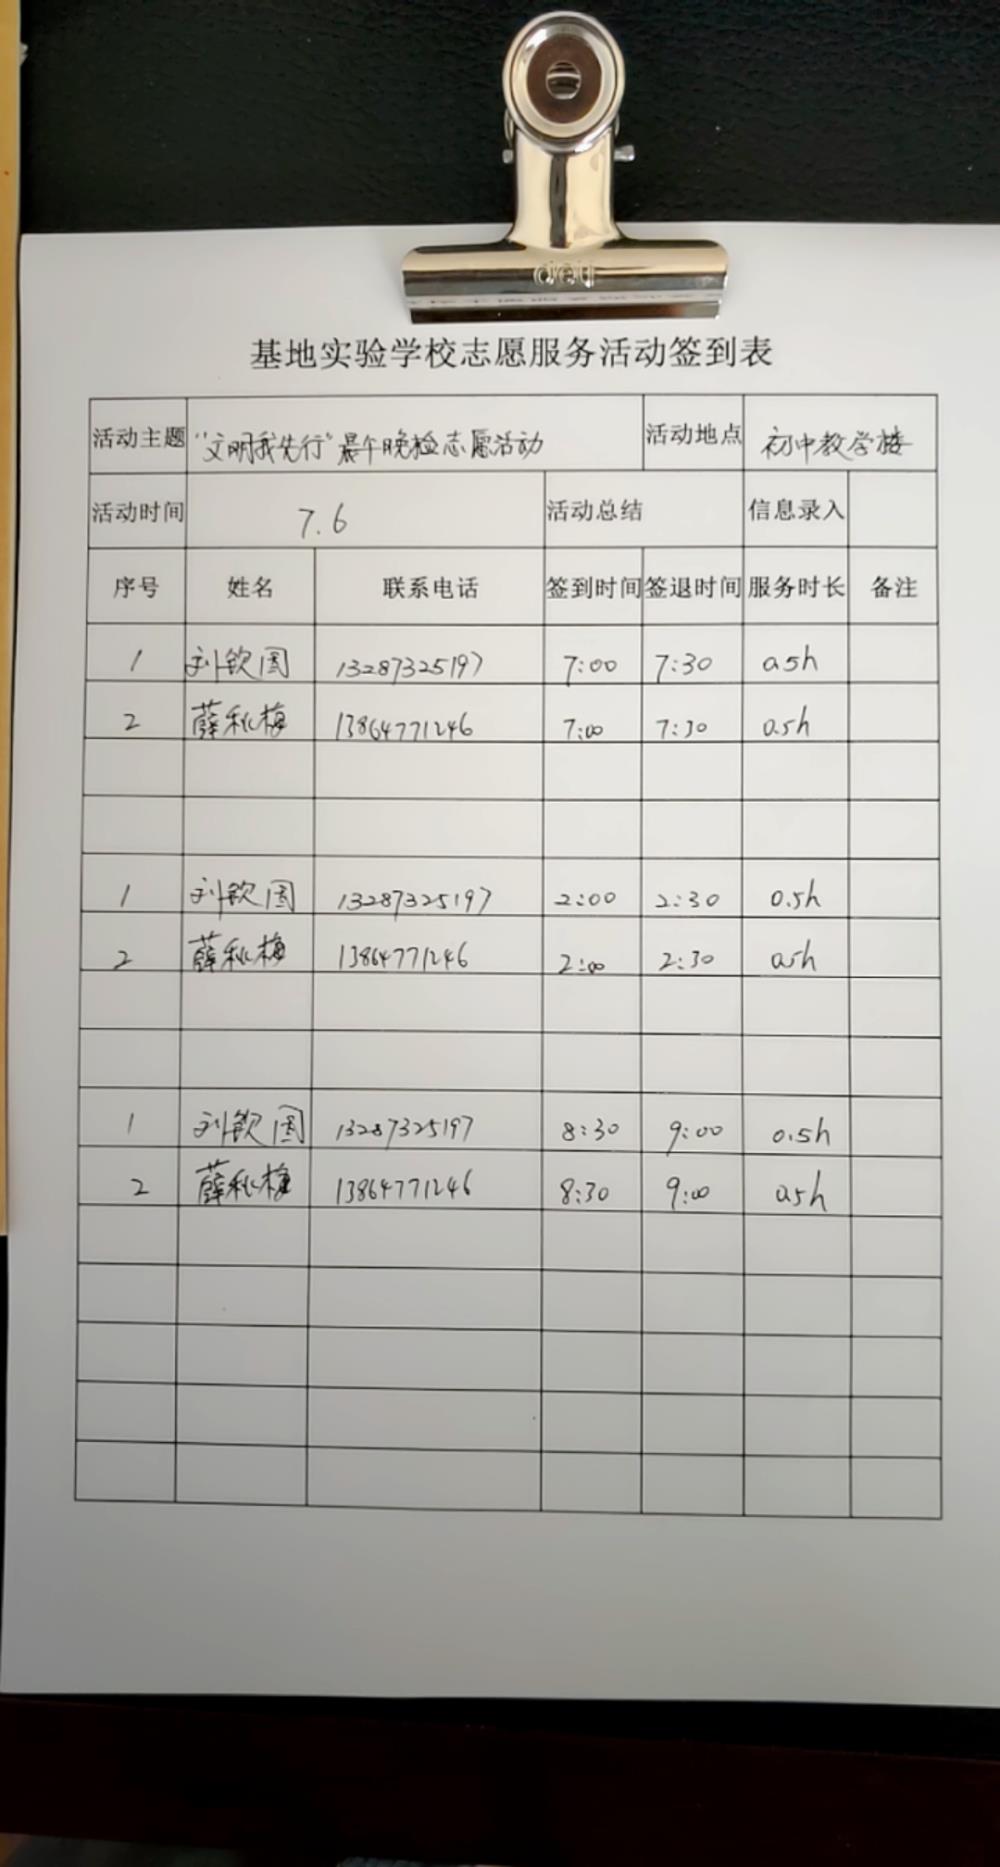 deli
基地实验学校志愿服务活动签到表
活动主题 "文明我先行"晨午晚检志愿活动 活动地点 初中教学楼
活动时间 7.6 活动总结 信息录入
序号 姓名 联系电话 签到时间 签退时间 服务时长 备注
1 刘钦国 13287325197 7:00 7:30 0.5h
2 薛秋梅 13864771246 7:00 7:30 0.5h
1 刘钦国 13287325197 2:00 2:30 0.5h
2 薛秋梅 13864771246 2:00 2:30 0.5h
1 刘钦国 13287325197 8:30 9:00 0.5h
2 薛秋梅 13864771246 8:30 9:00 0.5h